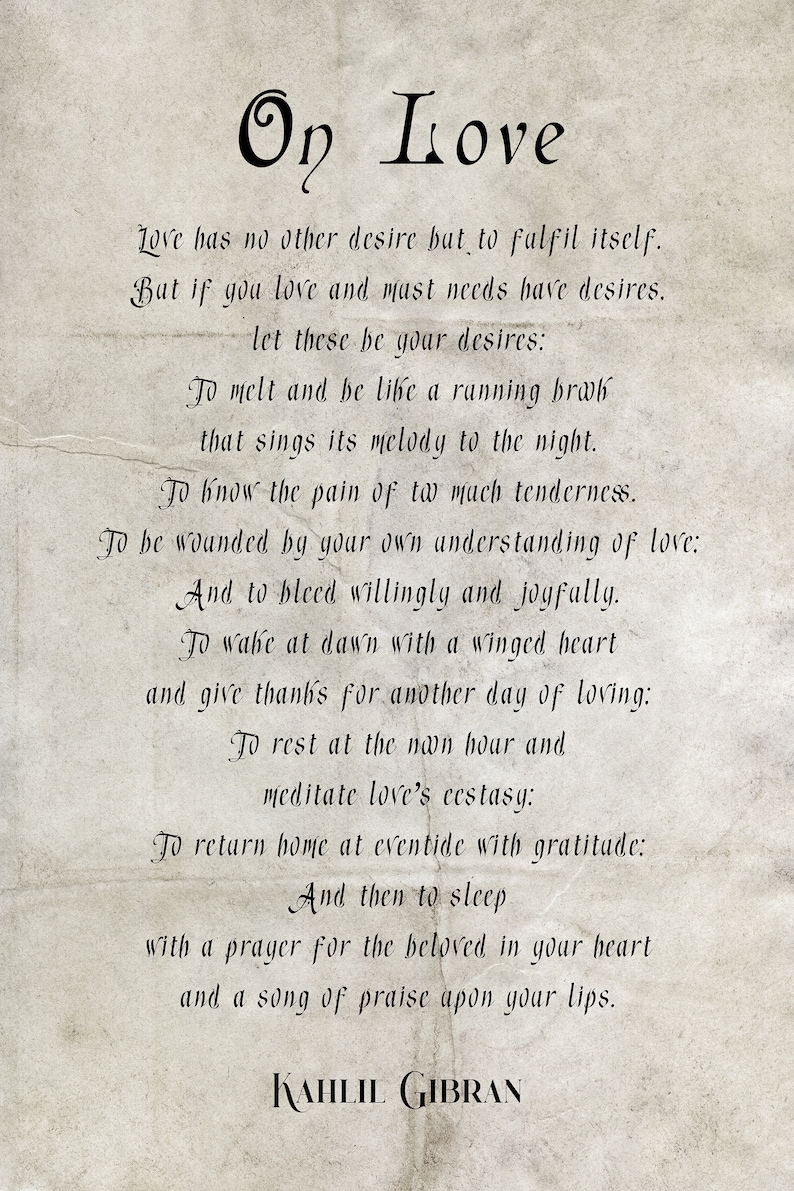 On Love
Love has no other desire but to fulfil itself.
But if you love and must needs have desires.
let these be your desires:
To melt and be like a running brook
that sings its melody to the night.
To know the pain of too much tenderness.
To be wounded by your own understanding of love:
And to bleed willingly and joyfully.
To wake at dawn with a winged heart
and give thanks for another day of loving:
To rest at the noon hour and
meditate love's ecstasy:
To return home at eventide with gratitude:
And then to sleep
with a prayer for the beloved in your heart
and a song of praise upon your lips.
Kahlil Gibran